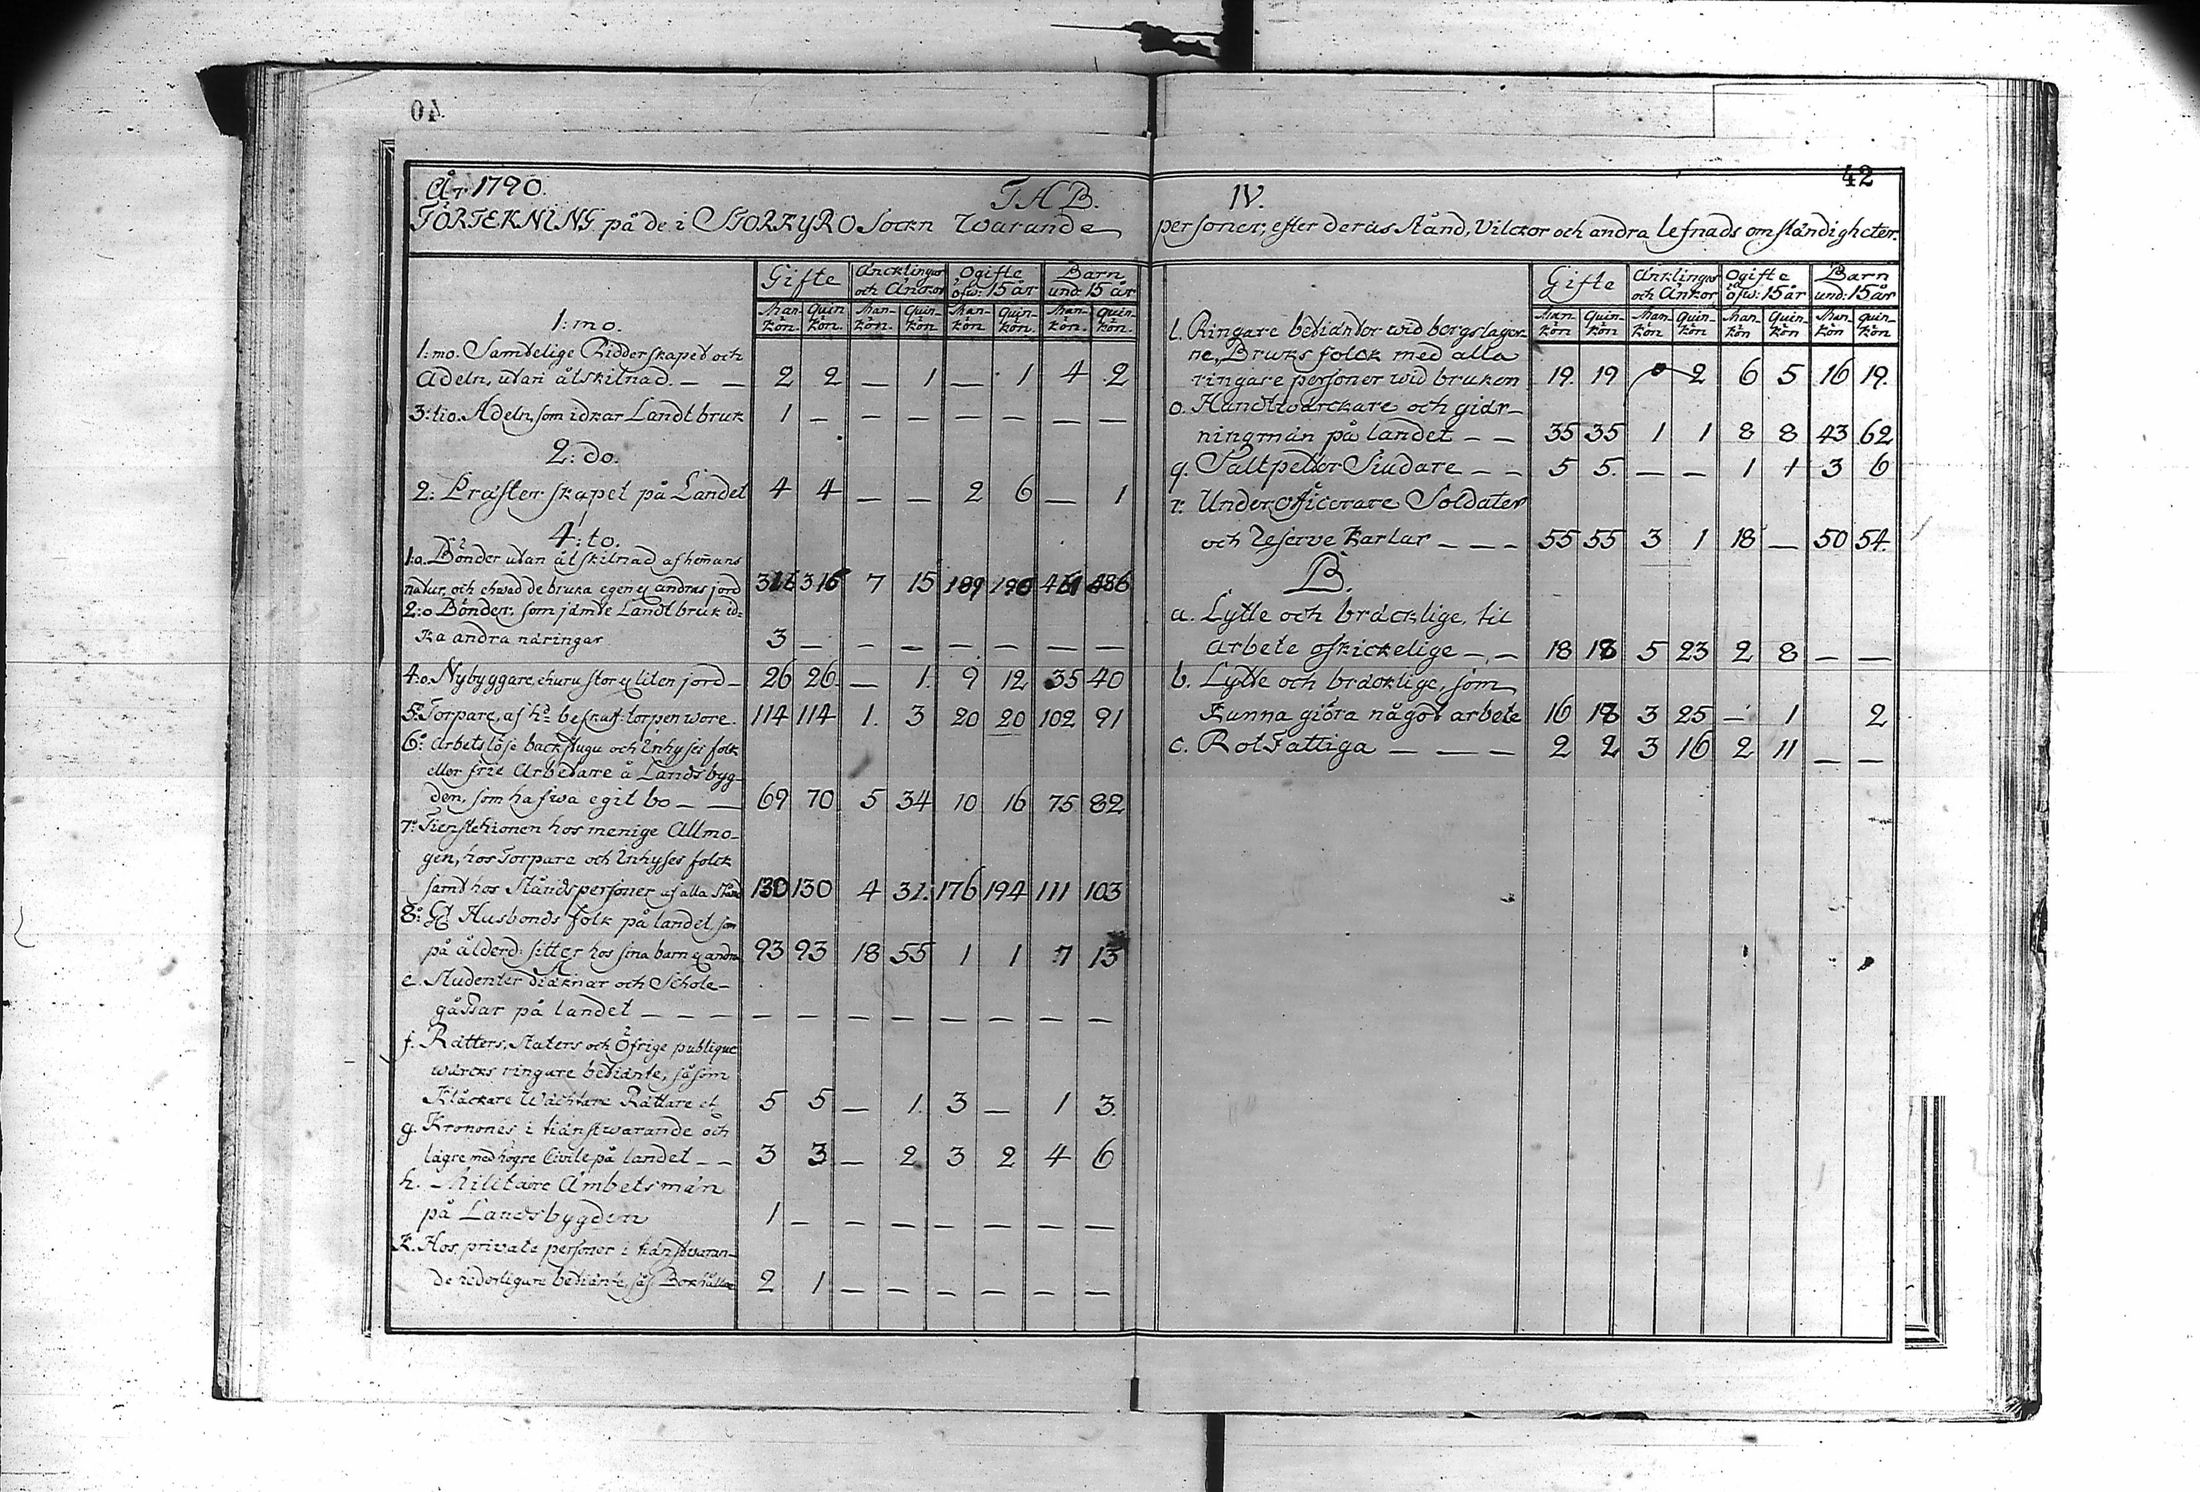 40
42
År 1790. TAB. IV.
FÖRTEKNING på de i STORKYRO Sockn warande personer, efter deras Stånd, Vilckor och andra lefnads omständigheter.
Gifte Äncklingar och Änckor Ogifte öfw: 15 år Barn und: 15 år
Man-kön. Quin-kön. Man-kön. Quin-kön Man-kön Quin-kön. Man-kön. Quin-kön.
1:mo.
1:mo. Samtelige Ridderskapet och
Adeln, utan åtskilnad. — — 2 2 — 1 — 1 4 2
3:tio. Adeln, som idkar Landtbruk 1 — — — — — — —
2:do.
2: Prästerskapet på Landet 4 4 — — 2 6 — 1
4:to.
1:o. Bönder utan åtskilnad af hemans
natur, och ehwad de bruka egen ell andras jord 316 316 7 15 189 190 461 486
2:o Bönder: som jämte Landtbruk id-
ka andra näringar 3 — — — — — — —
4:o. Nybyggare, ehuru stor ell liten jord — 26 26 — 1. 9 12 35 40
5:o Torpare, af hd beskaf: torpen wore. 114 114 1. 3 20 20 102 91
6:o Arbetslöse backstugu och Inhyses folk
eller frie Arbetare å Landsbyg-
den, som hafwa egit bo — — 69 70 5 34 10 16 75 82
7:o Tienstehionen hos menige Allmo-
gen, hos Torpare och Inhyses folck
samt hos Ståndspersoner af alla Stånd 130 130 4 31. 176 194 111 103
8:o Gl Husbonds folk på landet, som
på ålderd: sitter hos sina barn ell andra 93 93 18 55 1 1 7 13
e. Studenter Diäknar och Schole-
gåssar på landet — — — — — — — — — — —
f. Rätters, Staters och Öfrige publique
wärcks ringare betiänte, såsom
Klåckare Wächtare Rättare et 5 5 — 1. 3 — 1 3.
g. Kronones i tiänst warande och
lägre med högre Civile på landet — — 3 3 — 2 3 2 4 6
h. Militaire Ämbetsmän
på Landsbygden 1 — — — — — — —
K. Hos private personer i tiänstwaran-
de nederligare betiänte, sås: Bokhållare 2 1 — — — — — —
Gifte Änklingar och Änkor Ogifte öfw: 15 år Barn und: 15 år
Man-kön Quin-kön Man-kön Quin-kön Man-kön Quin-kön Man-kön quin-kön
l. Ringare betiänter wid bergslager-
ne, Bruks folck med alla
ringare personer wid bruken 19. 19 2 6 5 16 19.
o. Handtwärckare och giär-
ningmän på landet — — 35 35 1 1 8 8 43 62
q. Saltpetter Siudare — — 5 5. — — 1 1 3 6
r. Under Officerare Soldater
och Reserve Karlar — — — 55 55 3 1 18 — 50 54.
B.
a. Lytte och bräcklige, til
arbete oskickelige — — 18 18 5 23 2 8 — —
b. Lytte och bräcklige, som
Kunna giöra något arbete 16 18 3 25 — 1 2
c. Rot Fattiga — — — 2 2 3 16 2 11 — —